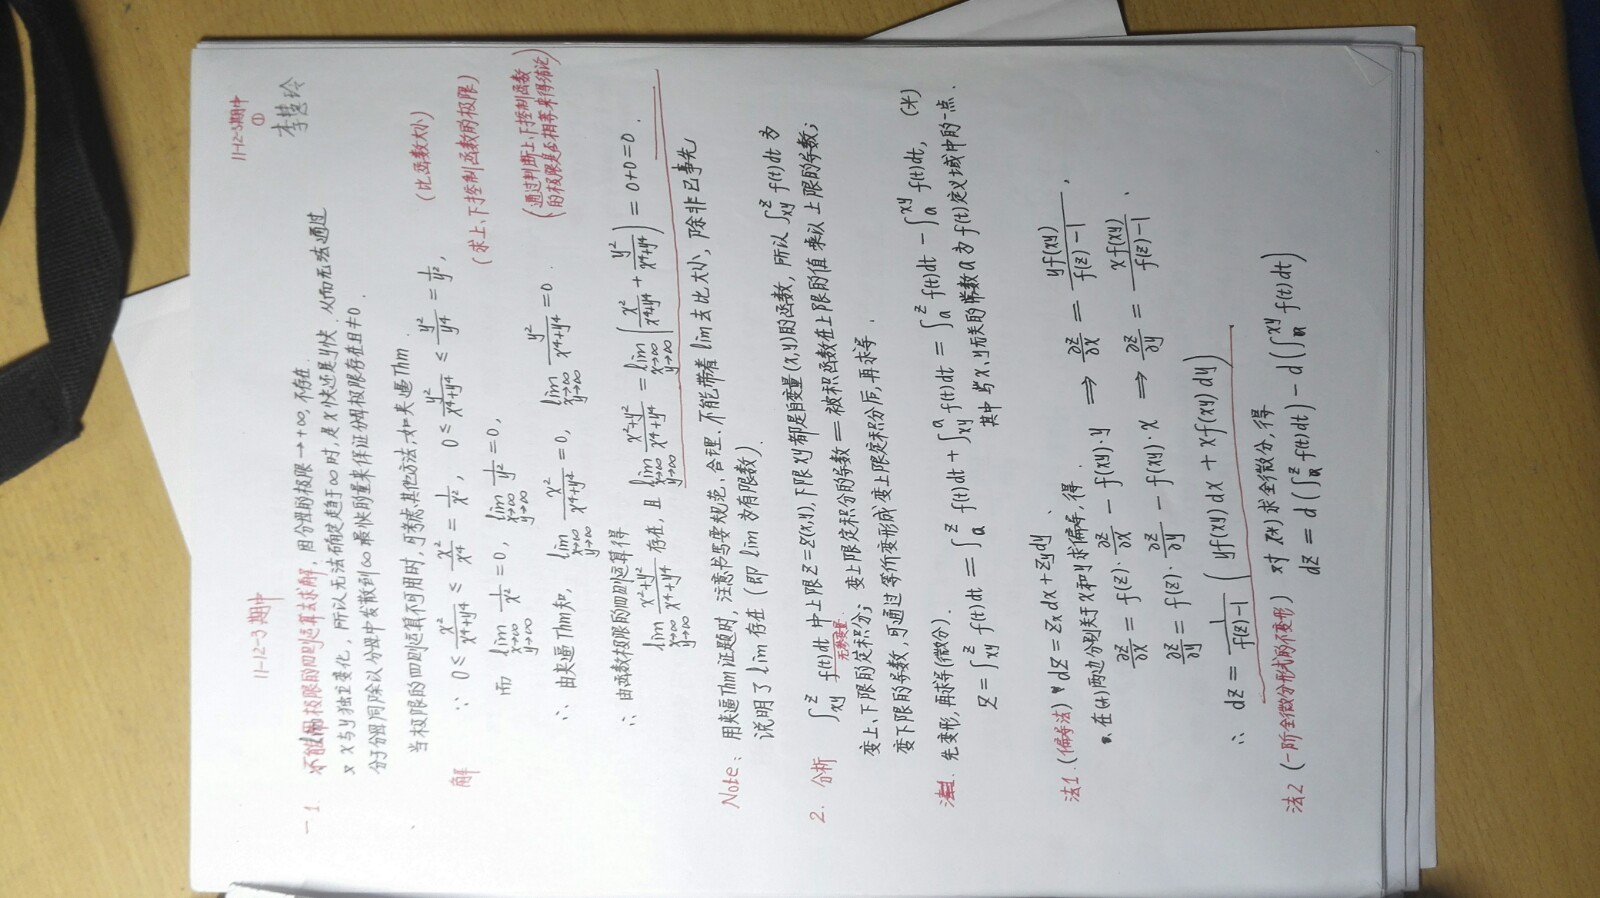 11-12-3期中
11-12-3期中
①
李慧玲
一 1. 不能用极限的四则运算去求解,因分母的极限→+∞,不存在.
x与y独立变化,所以无法确定趋于∞时,是x快还是y快.从而无法通过
分子分母同除以分母中发散到∞最快的量来保证分母极限存在且≠0.
当极限的四则运算不可用时,可考虑其他方法,如夹逼Thm.
解 ∵ 0 ≤ x²/(x⁴+y⁴) ≤ x²/x⁴ = 1/x², 0 ≤ y²/(x⁴+y⁴) ≤ y²/y⁴ = 1/y², (比函数大小)
而 lim_{x→∞ y→∞} 1/x² = 0, lim_{x→∞ y→∞} 1/y² = 0, (求上、下控制函数的极限)
∴ 由夹逼Thm知, lim_{x→∞ y→∞} x²/(x⁴+y⁴) = 0, lim_{x→∞ y→∞} y²/(x⁴+y⁴) = 0. (通过判断上、下控制函数
的极限是否相等来得结论)
∴ 由函数极限的四则运算得
lim_{x→∞ y→∞} (x²+y²)/(x⁴+y⁴) 存在,且 lim_{x→∞ y→∞} (x²+y²)/(x⁴+y⁴) = lim_{x→∞ y→∞} (x²/(x⁴+y⁴) + y²/(x⁴+y⁴)) = 0+0=0.
Note: 用夹逼Thm证题时,注意书写要规范、合理.不能带着lim去比大小,除非已事先
说明了lim存在(即lim为有限数).
2. 分析 ∫_{xy}^{z} f(t)dt中上限z=z(x,y),下限xy都是自变量(x,y)的函数,所以∫_{xy}^{z} f(t)dt为
变上、下限的定积分;变上限定积分的导数=被积函数在上限的值乘以上限的导数;
变下限的导数,可通过等价变形成变上限定积分后,再求导.
先变形,再求导(微分).
z = ∫_{xy}^{z} f(t)dt = ∫_{a}^{z} f(t)dt + ∫_{xy}^{a} f(t)dt = ∫_{a}^{z} f(t)dt - ∫_{a}^{xy} f(t)dt, (*)
其中与x,y无关的常数a为f(t)定义域中的一点.
法1.(偏导法) dz = z_x dx + z_y dy
在(*)两边分别关于x和y求偏导,得
∂z/∂x = f(z)·∂z/∂x - f(xy)·y ⟹ ∂z/∂x = yf(xy)/(f(z)-1),
∂z/∂y = f(z)·∂z/∂y - f(xy)·x ⟹ ∂z/∂y = xf(xy)/(f(z)-1).
∴ dz = 1/(f(z)-1) (yf(xy)dx + xf(xy)dy)
法2 (一阶全微分形式的不变形) 对(*)求全微分,得
dz = d(∫_{a}^{z} f(t)dt) - d(∫_{a}^{xy} f(t)dt)